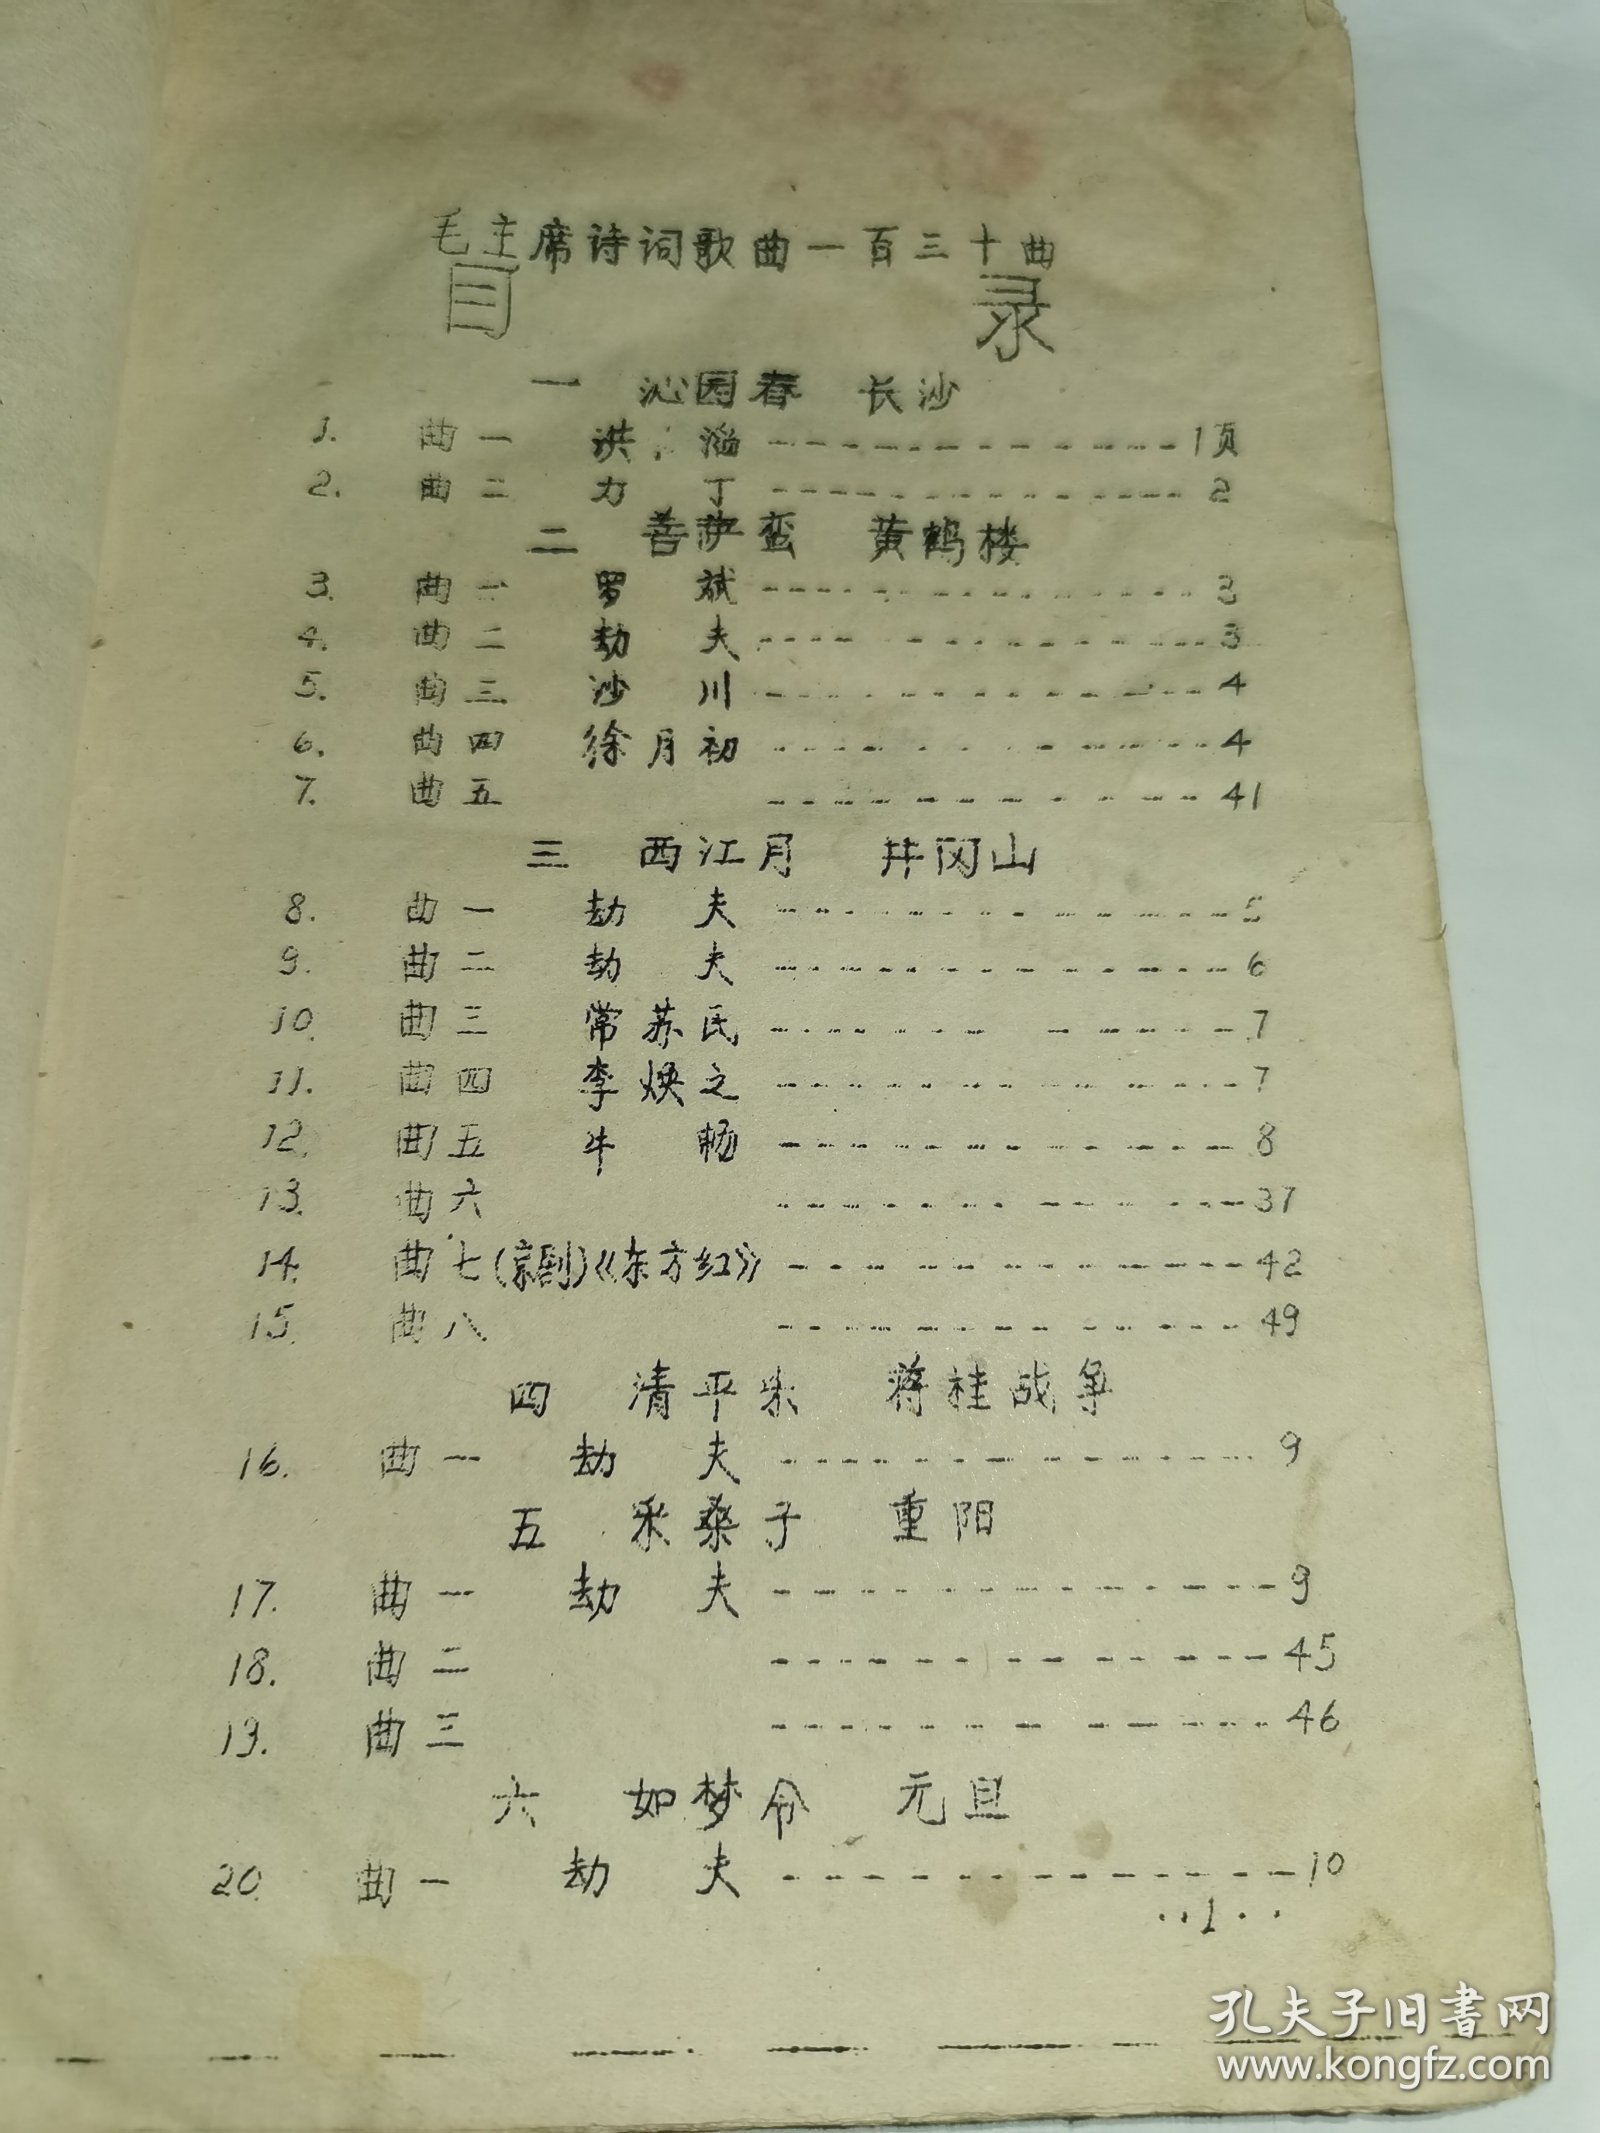 毛主席诗词歌曲一百三十曲
目 录
一 沁园春 长沙
1. 曲一 洪 涵 1页
2. 曲二 力 丁 2
二 菩萨蛮 黄鹤楼
3. 曲一 罗 斌 3
4. 曲二 劫 夫 3
5. 曲三 沙 川 4
6. 曲四 徐月初 4
7. 曲五 41
三 西江月 井冈山
8. 曲一 劫 夫 5
9. 曲二 劫 夫 6
10. 曲三 常苏民 7
11. 曲四 李焕之 7
12. 曲五 牛 畅 8
13. 曲六 37
14. 曲七(京剧)《东方红》 42
15. 曲八 49
四 清平乐 蒋桂战争
16. 曲一 劫 夫 9
五 采桑子 重阳
17. 曲一 劫 夫 9
18. 曲二 45
19. 曲三 46
六 如梦令 元旦
20. 曲一 劫 夫 10
··1··
孔夫子旧书网
www.kongfz.com